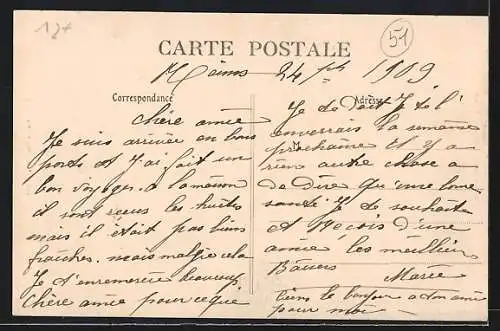 51
CARTE POSTALE
Reims 24 7bre 1909
Correspondance
Adresse
Chère amie
Je suis arrivée en bons
ports et J'ai fait un
bon voyages. a la maison
il sont reçus les huitres
mais il était pas biens
fraiches. mais malgre cela
Je t'en remercie beaucoup
Chère amie pour ce que
Je te doit Je te l'
enverrais la semaine
prochaine il y a
rien autre chose a
de dire que une bonne
santé Je te souhaite
et Recois d'une
amie les meilleurs
Baisers
Marie
biens le bonjour a ton amie
pour moi